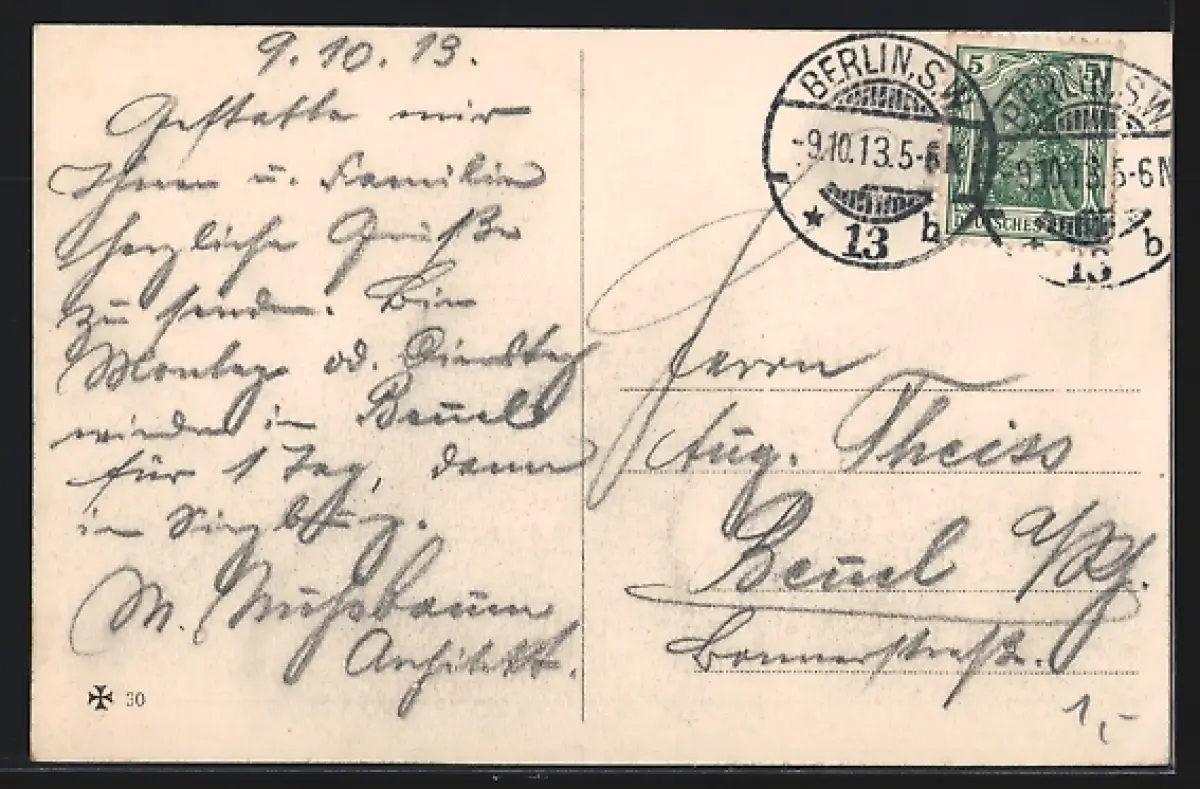 9.10.13.
Gestatte mir
Ihnen u. Familie
herzliche Grüße
zu senden. Bin
Montag od. Dienstag
wieder in Beuel
für 1 Tag, dann
in Siegburg.
M. Nußbaum
Architekt.
30
BERLIN, S.W
-9.10.13.5-6N
* 13 b
5 5
DEUTSCHES REICH
BERLIN, S.W
-9.10.13.5-6N
* 13 b
Herrn
Aug. Theiss
Beuel a/Rh.
Bonnerstraße.
1,-